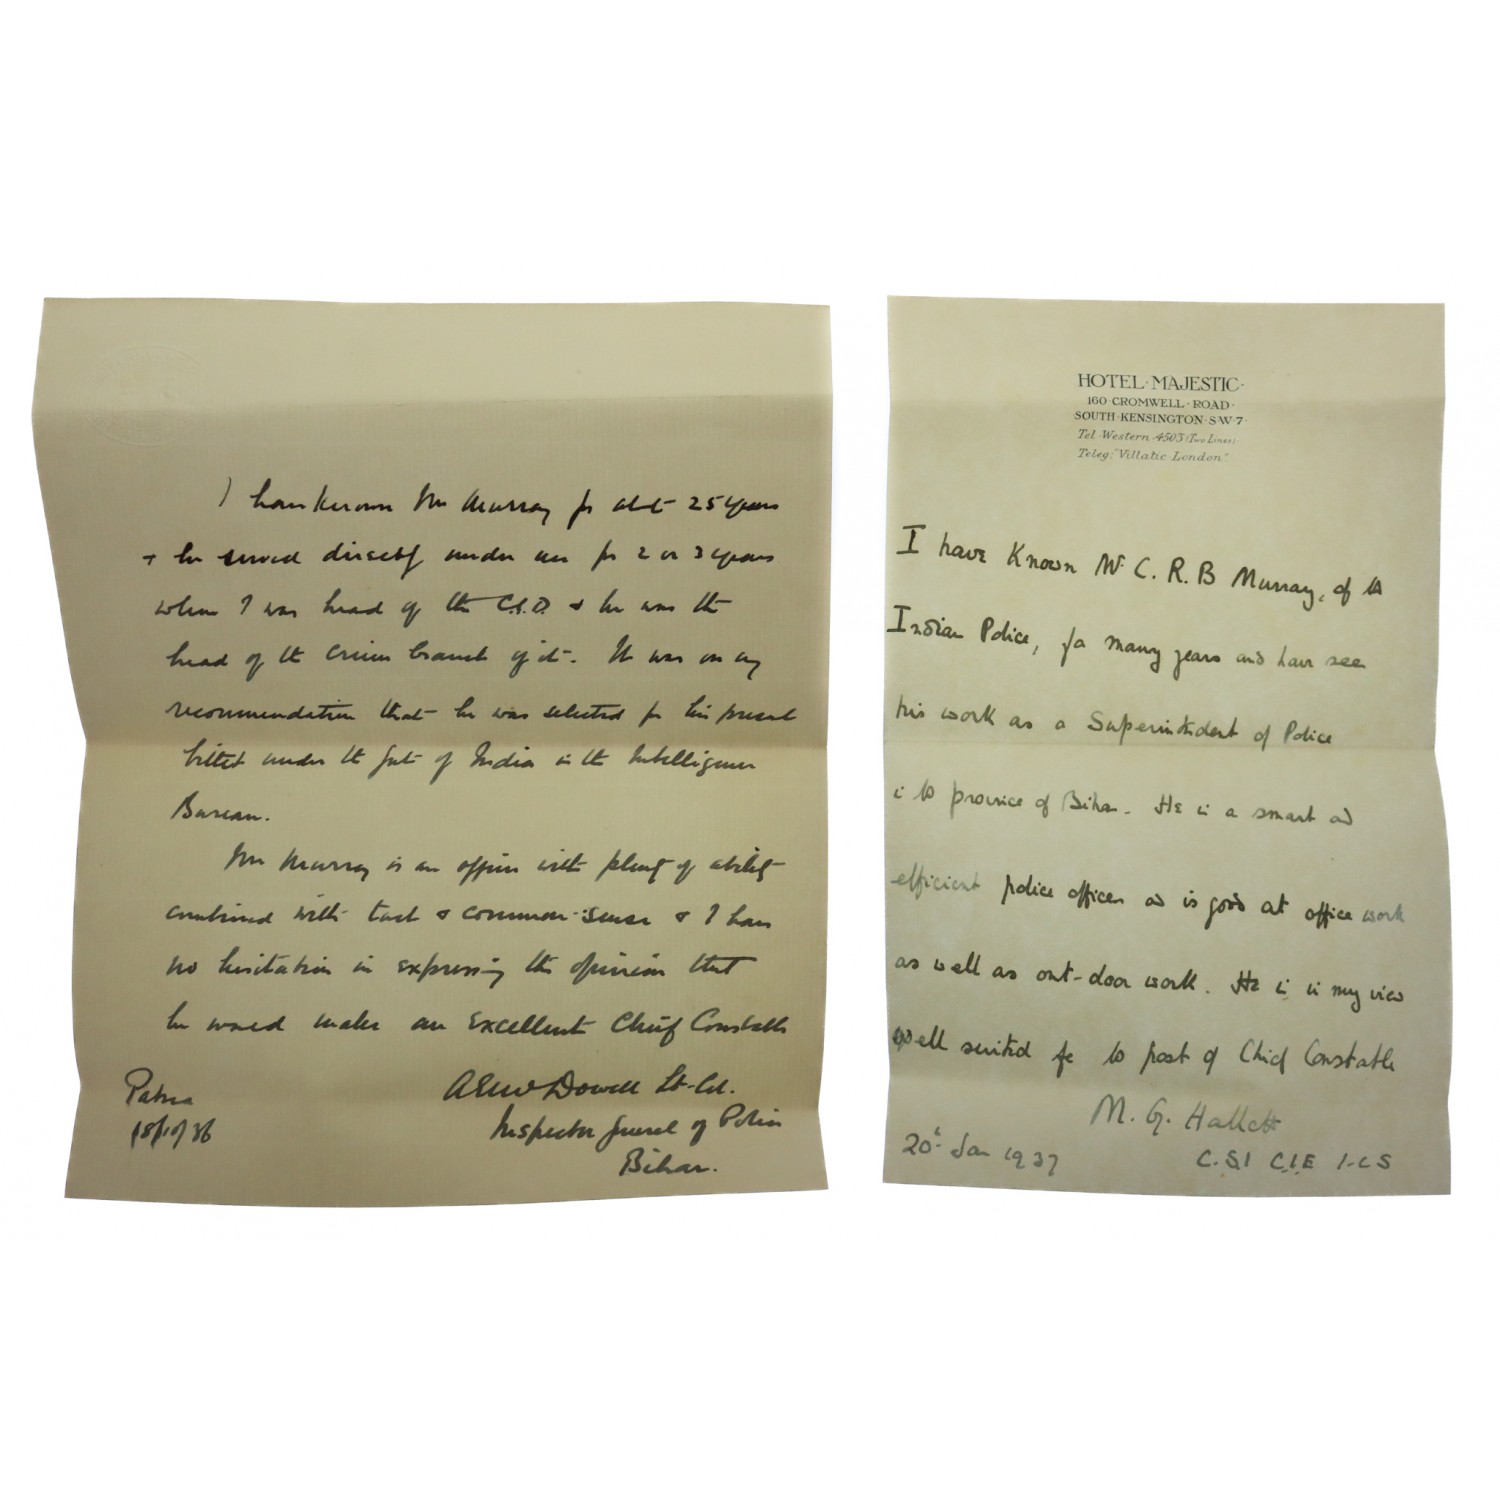 I have known Mr Murray for about 25 years
& he served directly under me for 2 or 3 years
when I was head of the C.I.D. & he was the
head of the crime branch of it. It was on my
recommendation that he was selected for his present
billet under the Govt of India in the Intelligence
Bureau.
Mr Murray is an officer with plenty of ability
combined with tact & common-sense & I have
no hesitation in expressing the opinion that
he would make an excellent Chief Constable
Patna
Dowell Lt-Col.
Inspector General of Police
Bihar.
HOTEL·MAJESTIC·
160·CROMWELL·ROAD·
SOUTH·KENSINGTON·S·W·7·
Tel·Western·4503 (Two Lines)
Teleg: "Villatic·London"
I have known Mr C. R. B Murray, of the
Indian Police, for many years and have seen
his work as a Superintendent of Police
in the province of Bihar. He is a smart and
efficient police officer and is good at office work
as well as out-door work. He is in my view
well suited for the post of Chief Constable
M. G. Hallett
20th Jan 1937
C.S.I C.I.E I.C.S